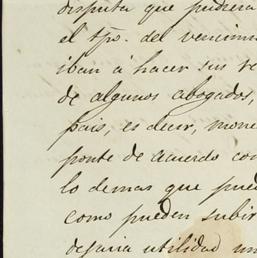 disputa que pudiera
el tpo. del vencim
iban á hacer sus re
de algunos abogados,
pais, es decir, mone
ponte de acuerdo con
lo demas que pued
como pueden subir
dejaria utilidad un